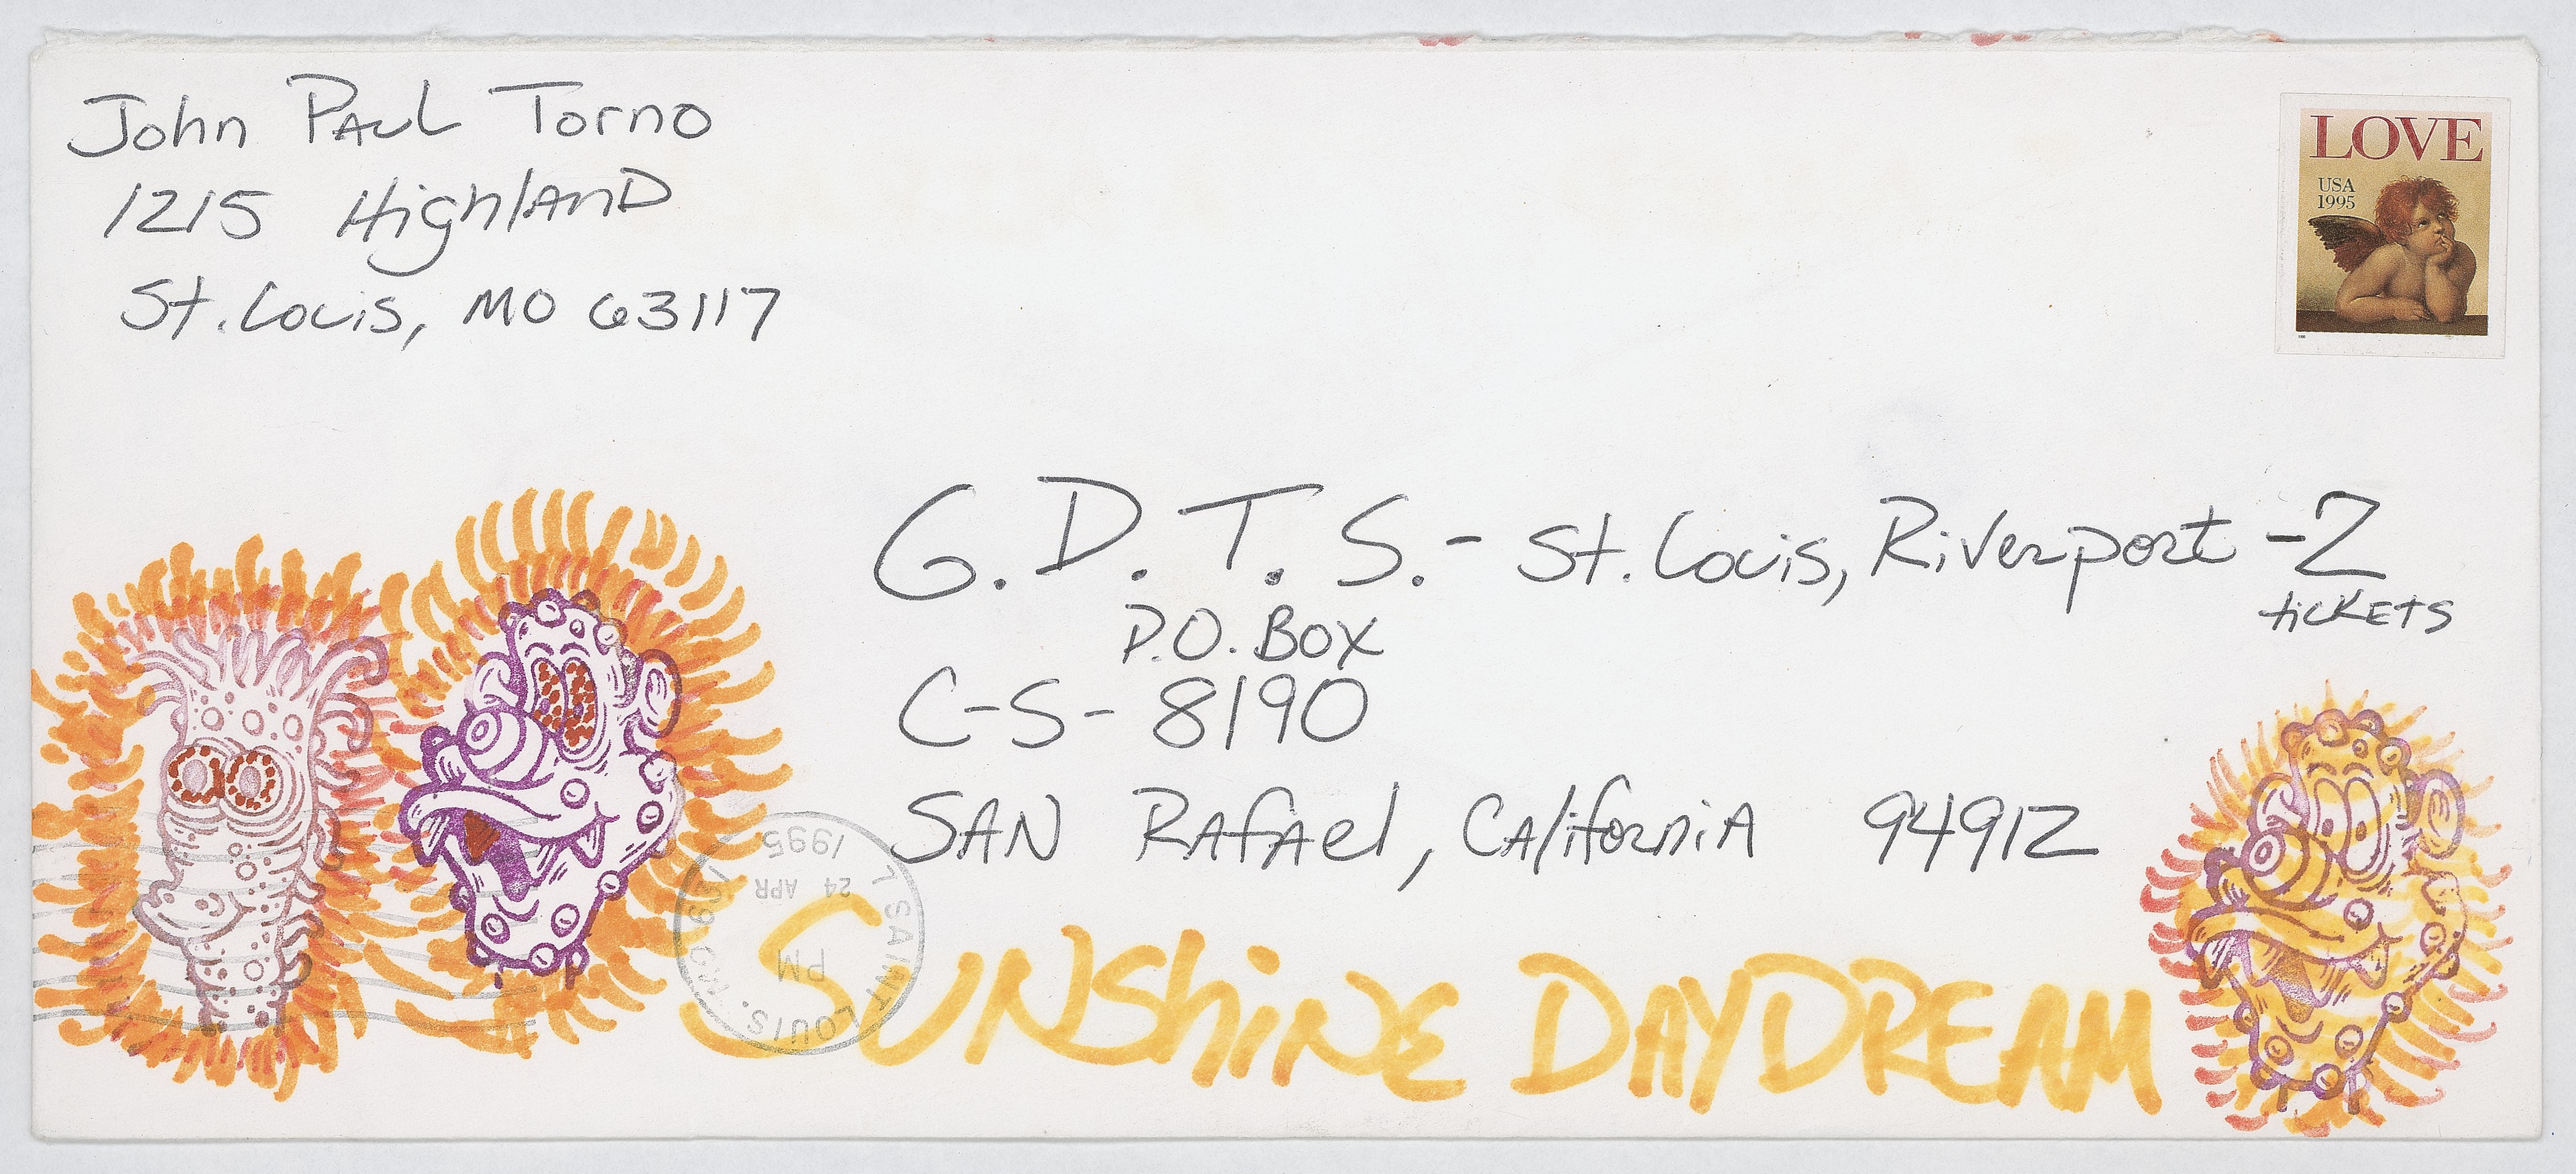 John Paul Torno
1215 Highland
St. Louis, MO 63117
LOVE
USA
1995
G.D.T.S.- St. Louis, Riverport -2
tickets
P.O. Box
C-S- 8190
San Rafael, California 94912
SUNShiNE DAYDREAM
SAINT LOUIS,
PM
24 APR
1995